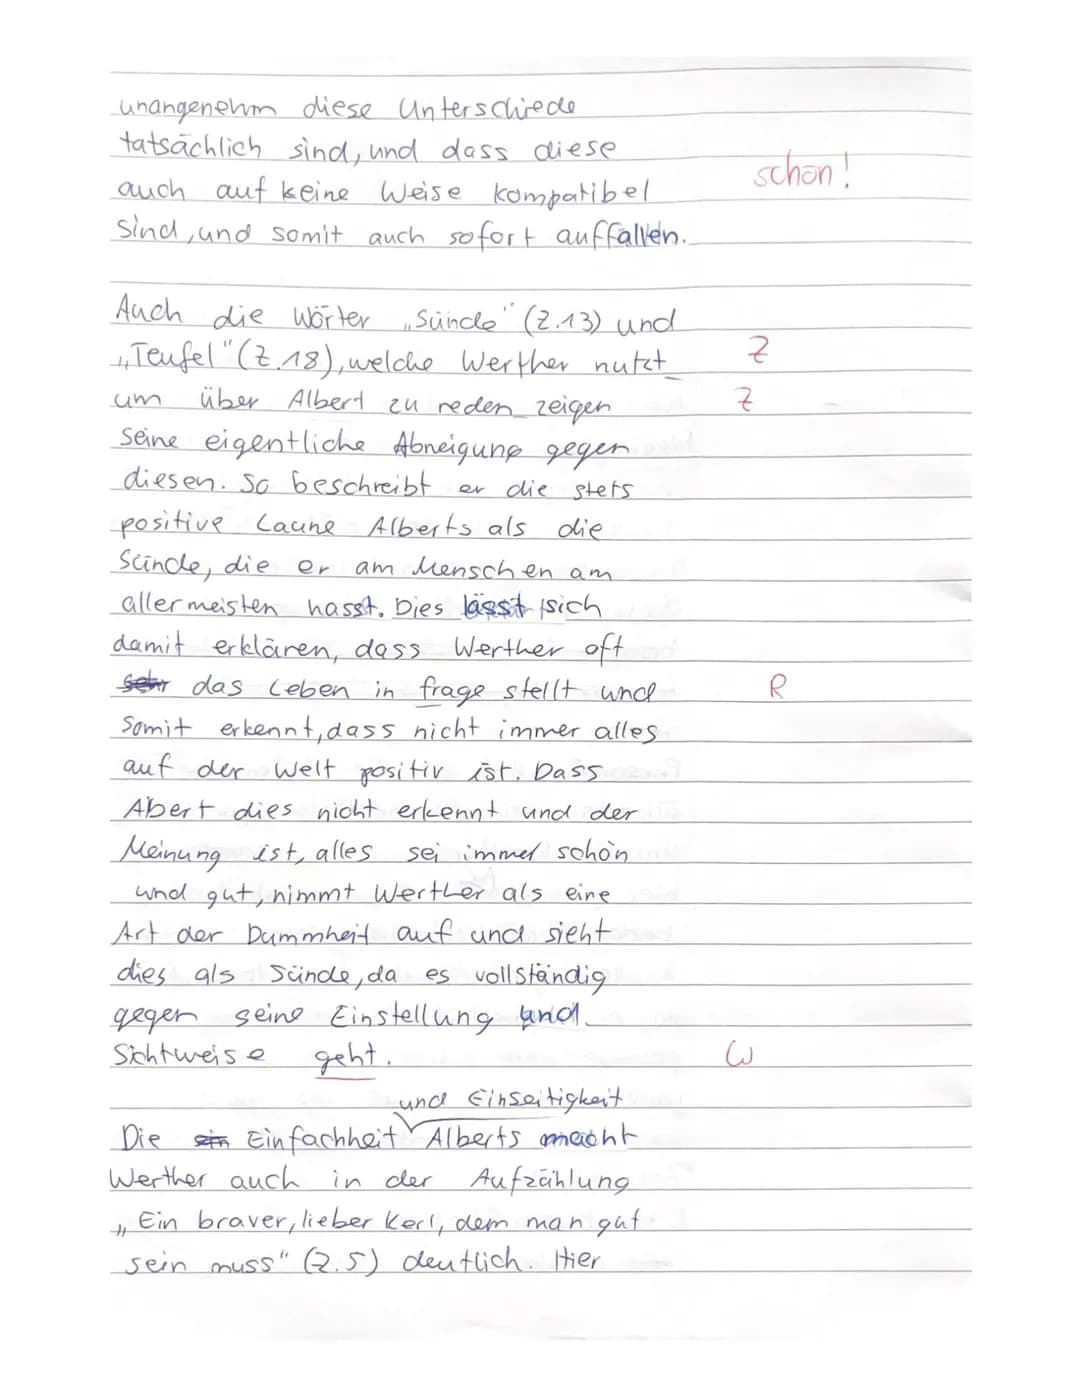 unangenehm diese Unterschiede
tatsächlich sind, und dass diese
schön!
auch auf keine Weise kompatibel
sind, und somit auch sofort auffallen.
Auch die Wörter „Sünde" (Z.13) und
„Teufel" (Z.18), welche Werther nutzt Z
um über Albert zu reden zeigen Z
seine eigentliche Abneigung gegen
diesen. So beschreibt er die stets
positive Laune Alberts als die
Sünde, die er am Menschen am
allermeisten hasst. Dies lässt sich
damit erklären, dass Werther oft
sehr das Leben in frage stellt und R
somit erkennt, dass nicht immer alles
auf der Welt positiv ist. Dass
Abert dies nicht erkennt und der
Meinung ist, alles sei immer schön
und gut, nimmt Werther als eine
Art der Dummheit auf und sieht
dies als Sünde, da es vollständig
gegen seine Einstellung und
Sichtweise geht. W
und Einseitigkeit
Die ein Einfachheit Alberts macht
Werther auch in der Aufzählung
„Ein braver, lieber Kerl, dem man gut
sein muss" (Z.5) deutlich. Hier